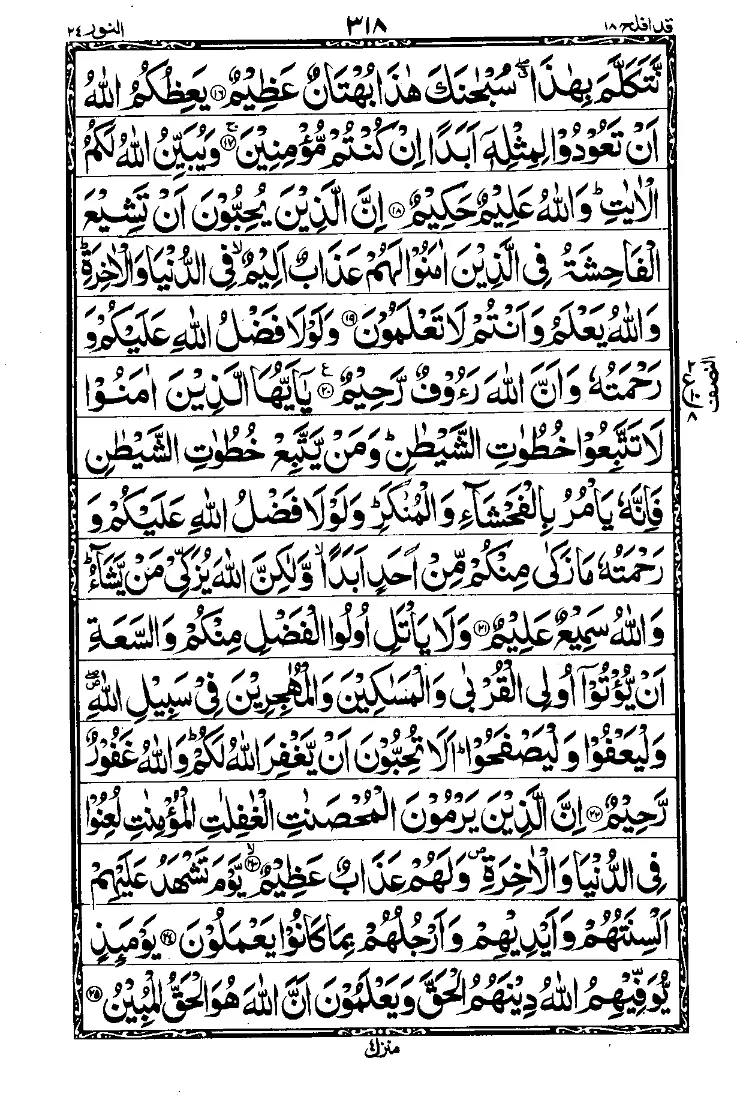 قد افلح ١٨
٣١٨
النور ٢٤
نَّتَكَلَّمَ بِهٰذَا ۖ سُبْحٰنَكَ هٰذَا بُهْتَانٌ عَظِيْمٌ ﴿١٦﴾ يَعِظُكُمُ اللّٰهُ
اَنْ تَعُوْدُوْا لِمِثْلِهٖۤ اَبَدًا اِنْ كُنْتُمْ مُّؤْمِنِيْنَ ۚ﴿١٧﴾ وَيُبَيِّنُ اللّٰهُ لَكُمُ
الْاٰيٰتِ ؕ وَاللّٰهُ عَلِيْمٌ حَكِيْمٌ ﴿١٨﴾ اِنَّ الَّذِيْنَ يُحِبُّوْنَ اَنْ تَشِيْعَ
الْفَاحِشَةُ فِى الَّذِيْنَ اٰمَنُوْا لَهُمْ عَذَابٌ اَلِيْمٌ ۙ فِى الدُّنْيَا وَالْاٰخِرَةِ ؕ
وَاللّٰهُ يَعْلَمُ وَاَنْتُمْ لَا تَعْلَمُوْنَ ﴿١٩﴾ وَلَوْلَا فَضْلُ اللّٰهِ عَلَيْكُمْ وَ
رَحْمَتُهٗ وَاَنَّ اللّٰهَ رَءُوْفٌ رَّحِيْمٌ ﴿٢٠﴾ ع يٰۤاَيُّهَا الَّذِيْنَ اٰمَنُوْا
لَا تَتَّبِعُوْا خُطُوٰتِ الشَّيْطٰنِ ؕ وَمَنْ يَّتَّبِعْ خُطُوٰتِ الشَّيْطٰنِ
فَاِنَّهٗ يَاْمُرُ بِالْفَحْشَآءِ وَالْمُنْكَرِ ؕ وَلَوْلَا فَضْلُ اللّٰهِ عَلَيْكُمْ وَ
رَحْمَتُهٗ مَا زَكٰى مِنْكُمْ مِّنْ اَحَدٍ اَبَدًا ۙ وَّلٰكِنَّ اللّٰهَ يُزَكِّىْ مَنْ يَّشَآءُ ؕ
وَاللّٰهُ سَمِيْعٌ عَلِيْمٌ ﴿٢١﴾ وَلَا يَاْتَلِ اُولُوا الْفَضْلِ مِنْكُمْ وَالسَّعَةِ
اَنْ يُّؤْتُوْۤا اُولِى الْقُرْبٰى وَالْمَسٰكِيْنَ وَالْمُهٰجِرِيْنَ فِىْ سَبِيْلِ اللّٰهِ ۖ
وَلْيَعْفُوْا وَلْيَصْفَحُوْا ؕ اَلَا تُحِبُّوْنَ اَنْ يَّغْفِرَ اللّٰهُ لَكُمْ ؕ وَاللّٰهُ غَفُوْرٌ
رَّحِيْمٌ ﴿٢٢﴾ اِنَّ الَّذِيْنَ يَرْمُوْنَ الْمُحْصَنٰتِ الْغٰفِلٰتِ الْمُؤْمِنٰتِ لُعِنُوْا
فِى الدُّنْيَا وَالْاٰخِرَةِ ۪ وَلَهُمْ عَذَابٌ عَظِيْمٌ ۙ﴿٢٣﴾ يَّوْمَ تَشْهَدُ عَلَيْهِمْ
اَلْسِنَتُهُمْ وَاَيْدِيْهِمْ وَاَرْجُلُهُمْ بِمَا كَانُوْا يَعْمَلُوْنَ ﴿٢٤﴾ يَوْمَئِذٍ
يُّوَفِّيْهِمُ اللّٰهُ دِيْنَهُمُ الْحَقَّ وَيَعْلَمُوْنَ اَنَّ اللّٰهَ هُوَ الْحَقُّ الْمُبِيْنُ ﴿٢٥﴾
النصف
٢
ع
١٠
٨
منزل ٤